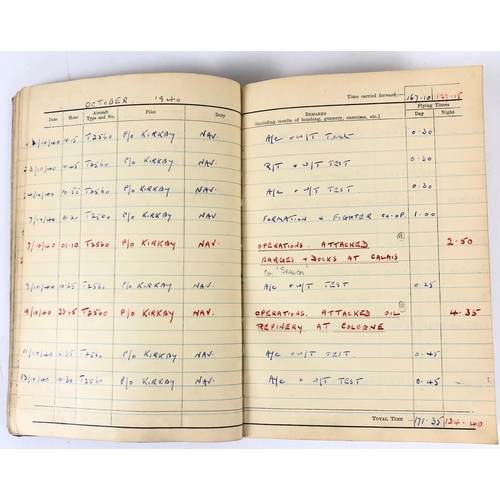 OCTOBER 1940
Time carried forward:— 167·10 127·15
Date Hour Aircraft Type and No. Pilot Duty REMARKS (including results of bombing, gunnery, exercises, etc.) Flying Times Day Night
/10/40 10·15 T2560 P/O KIRKBY NAV. A/C + W/T TEST 0·30
/10/40 T2560 P/O KIRKBY NAV. R/T + W/T TEST 0·30
/10/40 10·55 T2560 P/O KIRKBY NAV. A/C + W/T TEST 0·30
7/10/40 11·20 T2560 P/O KIRKBY NAV. FORMATION + FIGHTER CO-OP. 1·00
7/10/40 01·10 T2560 P/O KIRKBY NAV. OPERATIONS. ATTACKED 2·50
BARGES + DOCKS AT CALAIS
9/10/40 10·25 T2560 P/O KIRKBY NAV. A/C + W/T TEST 0·25
9/10/40 23·05 T2560 P/O KIRKBY NAV. OPERATIONS. ATTACKED OIL 4·35
REFINERY AT COLOGNE
11/10/40 T2560 P/O KIRKBY NAV. A/C + W/T TEST. 0·45
13/10/40 10·30 T2560 P/O KIRKBY NAV. A/C + W/T TEST 0·45
TOTAL TIME 171·35 134·40